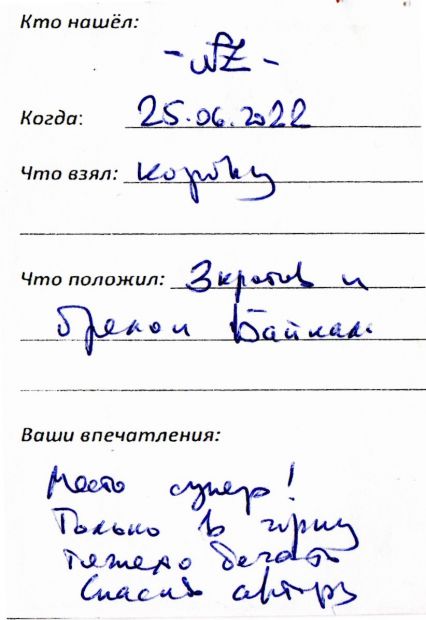 Кто нашёл:
- NZ -
Когда: 25.06.2022
Что взял: коробку
Что положил: и
брелок Байкал
Ваши впечатления:
Место супер!
Только в горку
тяжело бегать
Спасибо автору